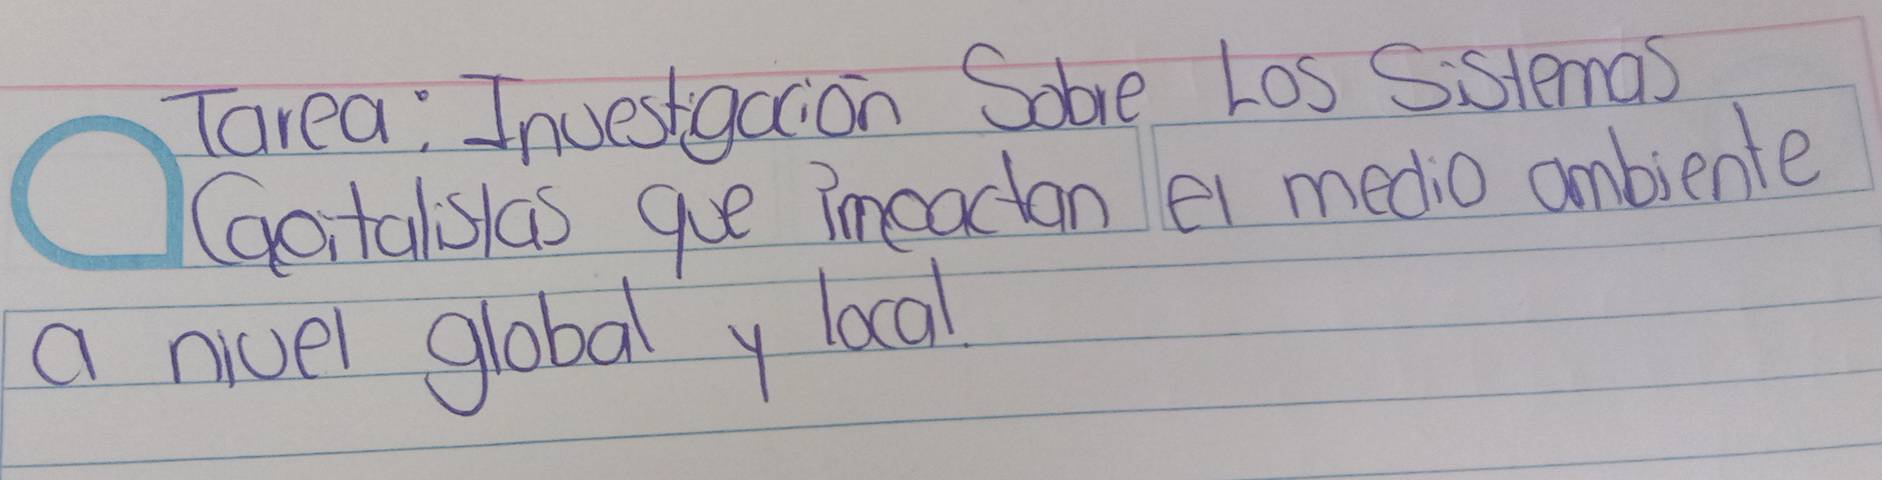 Tarea: Investigación Sobre Los Sistemas
Capitalistas que impactan el medio ambiente
a nivel global y local.